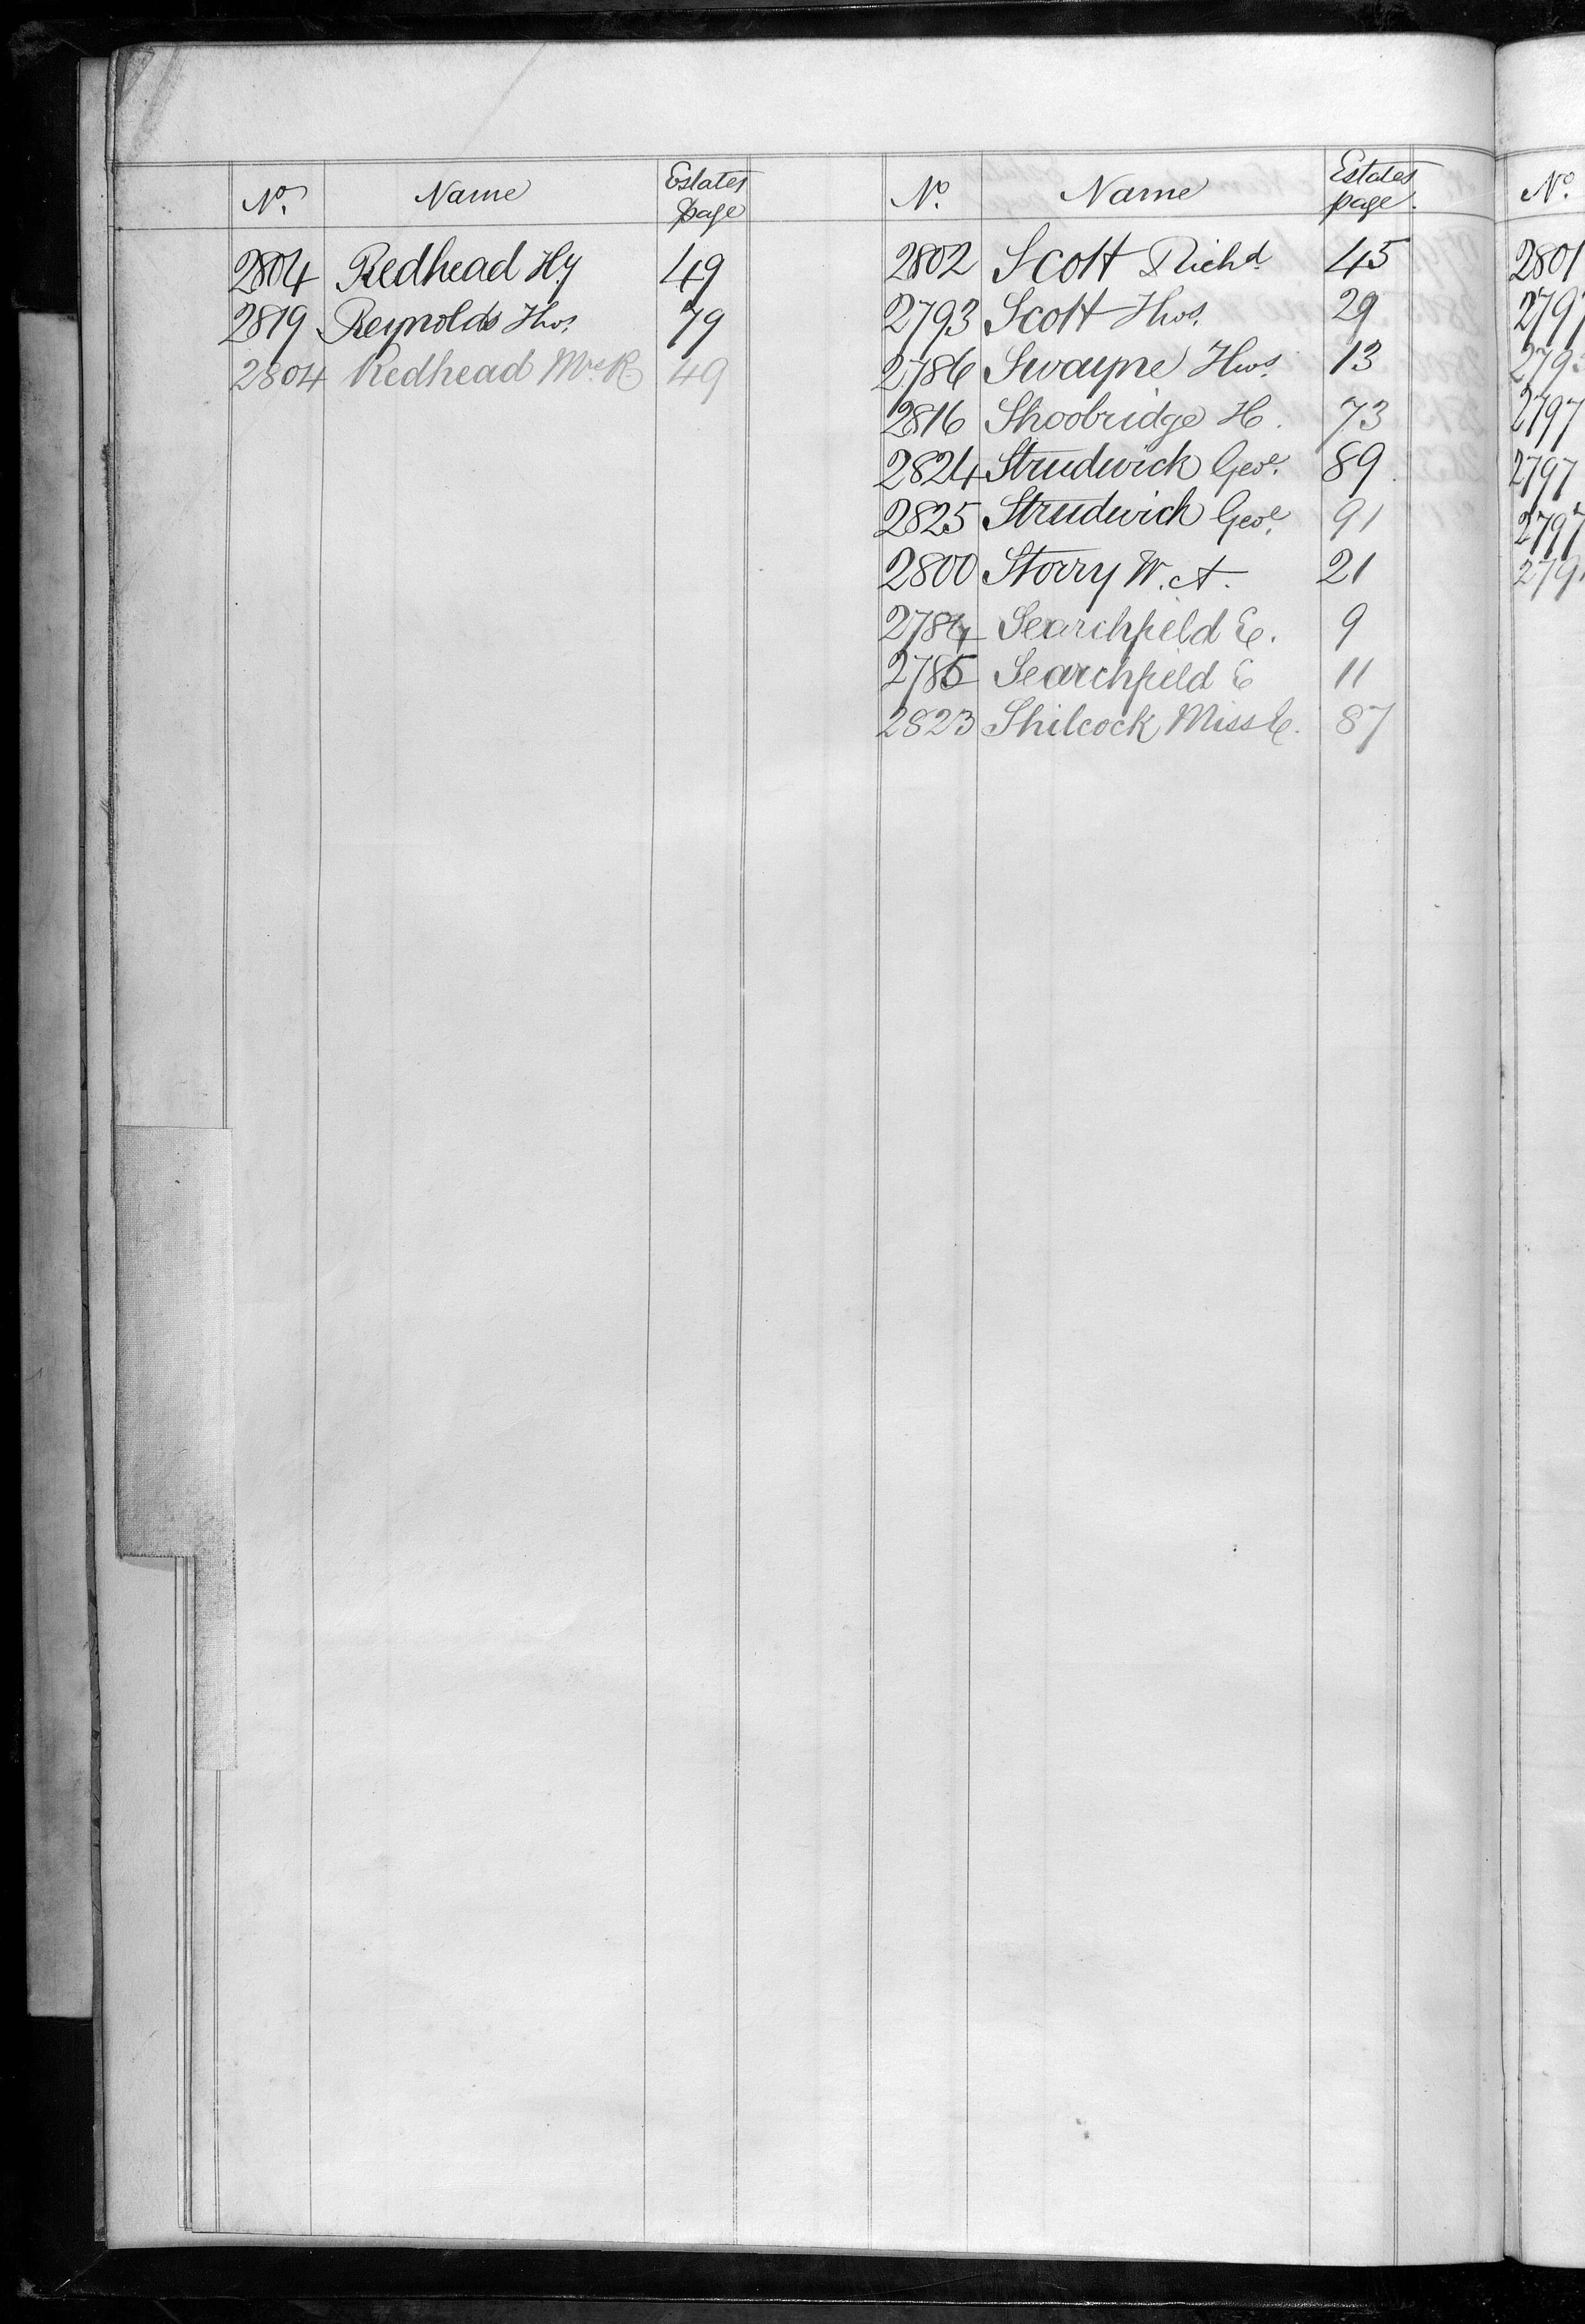 No. Name Estates page
2804 Redhead Hy 49
2819 Reynolds Thos. 79
2804 Redhead Mrs R 49
No. Name Estates page.
2802 Scott Richd. 45
2793 Scott Thos. 29
2786 Swayne Thos. 13
2816 Shoobridge H. 73
2824 Strudwick Geoe. 89
2825 Strudwick Geoe. 91
2800 Storry W. A. 21
2784 Searchfield E. 9
2785 Searchfield E 11
2823 Shilcock Miss E. 87
No.
2801
2797
2797
2797
2797